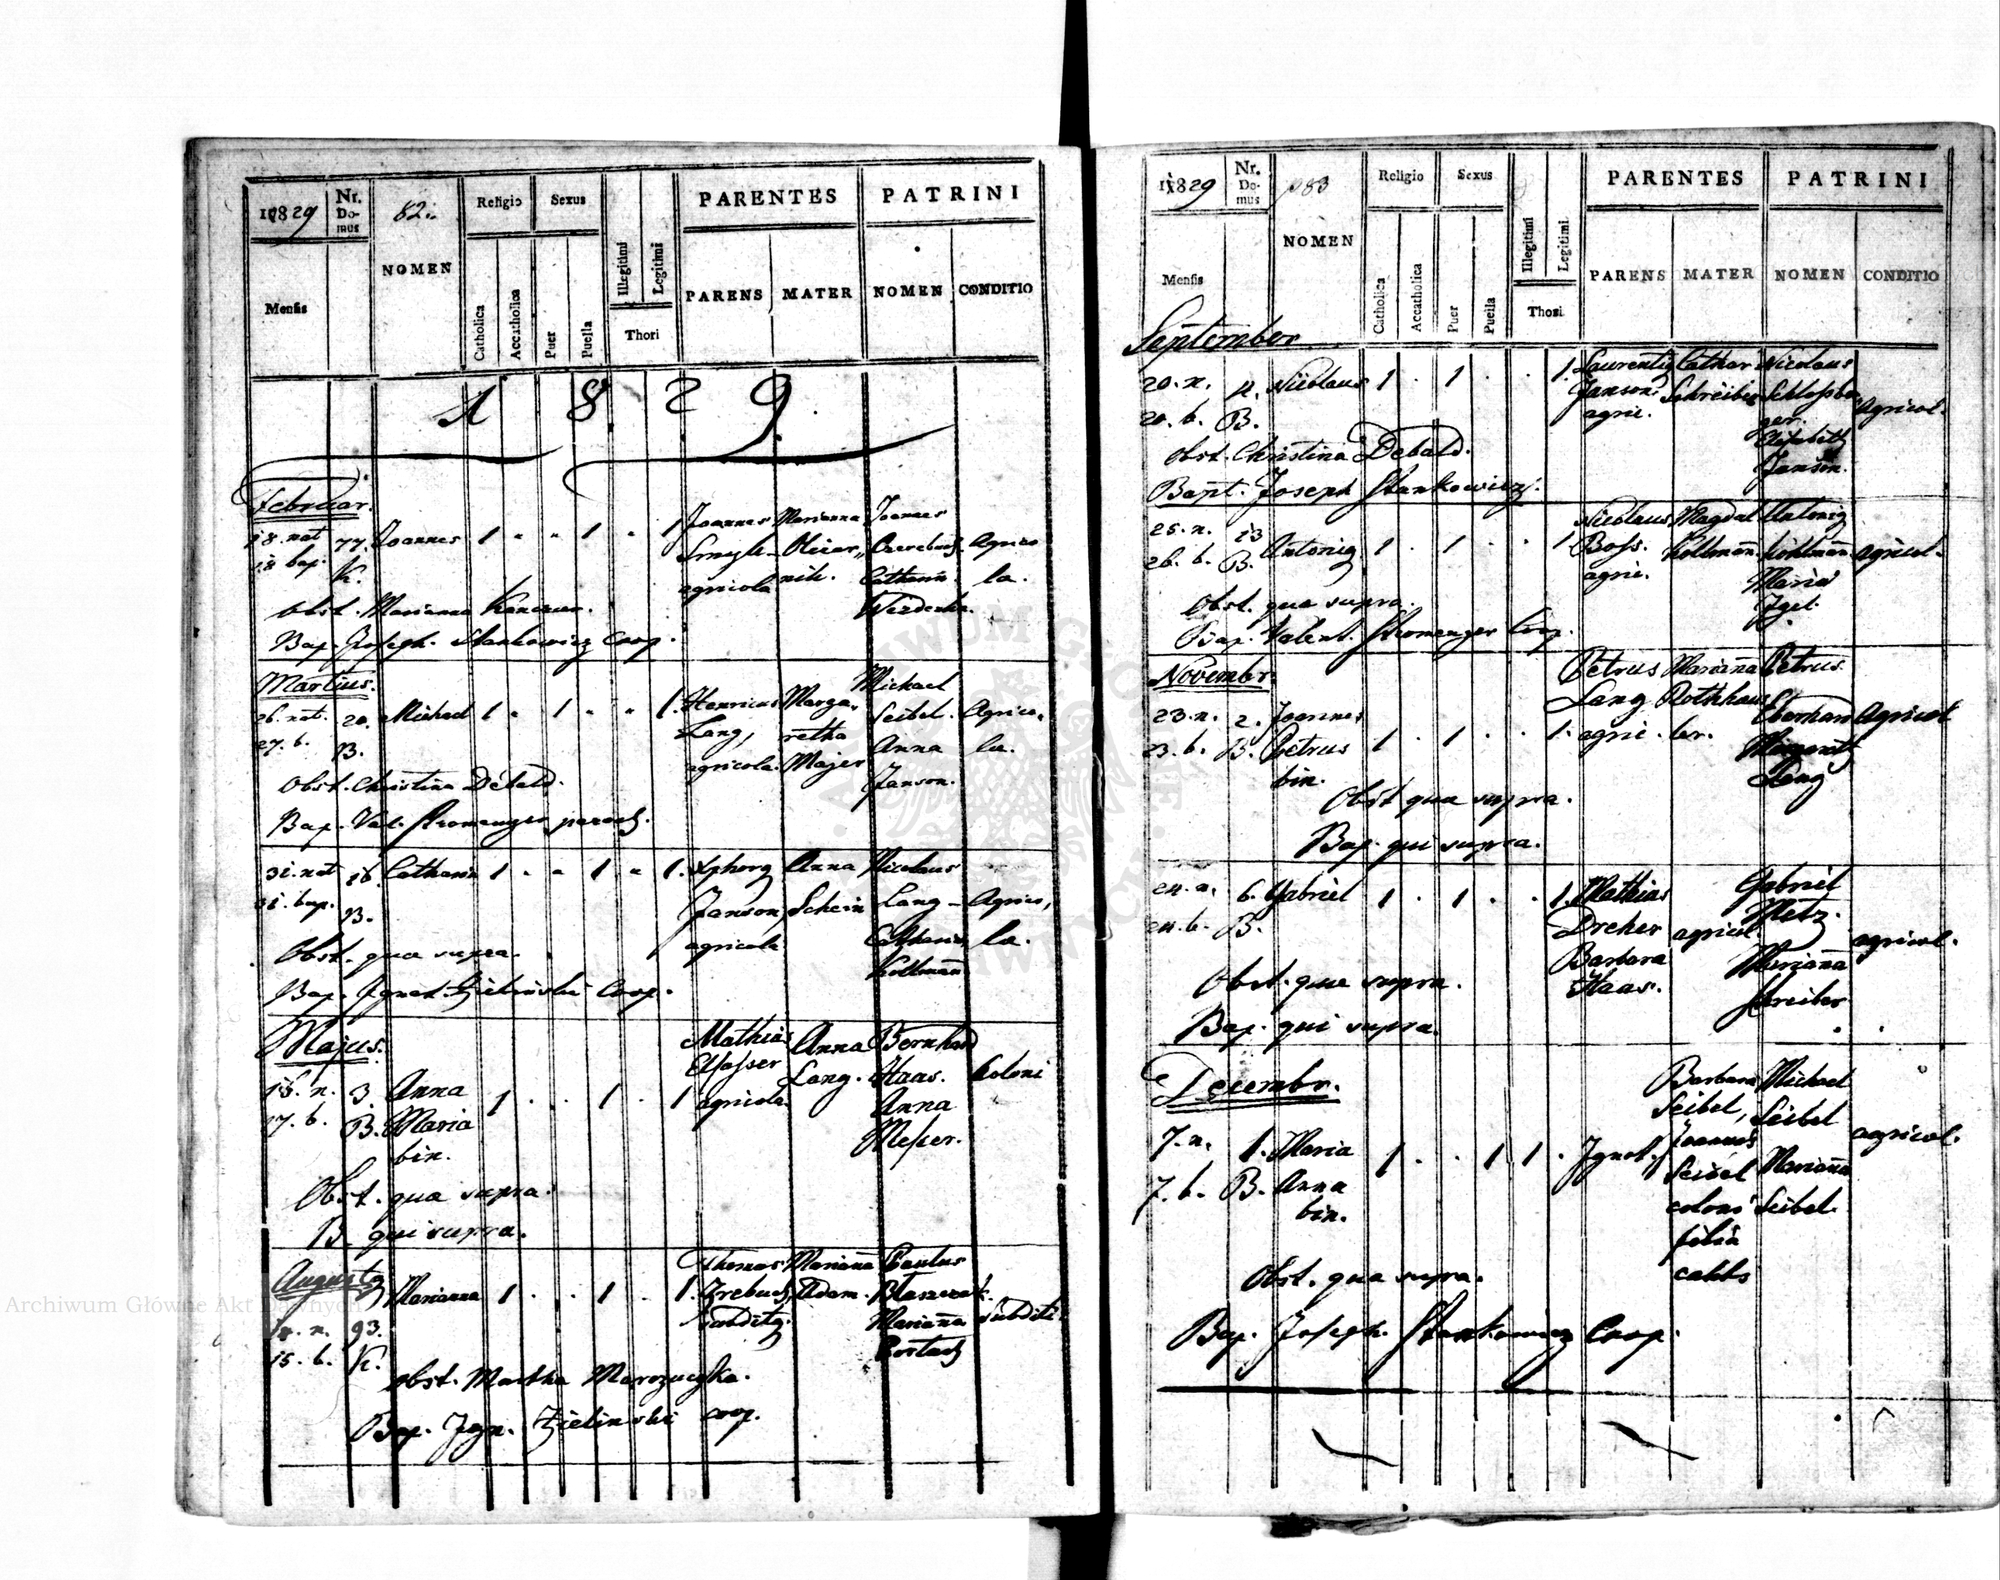 1829
Nr. Domus
82.
NOMEN
Religio
Sexus
PARENTES
PATRINI
Mensis
Catholica
Accatholica
Puer
Puella
Illegitimi
Legitimi
Thori
PARENS
MATER
NOMEN
CONDITIO
1829
Februar.
18. nat 77. Joannes 1 " " 1 " 1. Joannes Marianna Joannes
18 bap. K. agricola Agrico
Cathari. la.
obst. Marianna
Bap. Joseph. Stankowicz Coop.
Martius.
26. nat. 20. Michael 1 " 1 " " 1. Henricus Marga- Michael
27. b. B. Lang, retha Seibel. Agrico-
agricola. Majer Anna la.
Janson.
Obst. Christina Debald.
Bap. Val. Stromenger paroch.
31. nat 16. Catharin 1 " " 1 " 1. Anna Nicolaus
31. bap. B. Janson, Schein Lang Agrico,
agricola Catharin la.
Kollmann
Obst. qua supra.
Bap. Ignat. Zielinski Coop.
Majus.
Mathias Anna Bernhard
15. n. 3. Anna 1 . . 1 . 1 Elsasser Lang. Haas. Coloni
17. b. B. Maria agricola. Anna
bin. Messer.
Obst. qua supra.
B. qui supra.
Augusty
Thomas Marianna Paulus
Marianna 1 . . 1 . 1. Adam.
14. n. 93. subdity. Marianna subditi.
15. b. K.
obst. Martha
Bap. Ign. Zielinski coop.
1829
Nr. Domus
83
NOMEN
Religio
Sexus
PARENTES
PATRINI
Mensis
Catholica
Accatholica
Puer
Puella
Illegitimi
Legitimi.
Thori
PARENS
MATER
NOMEN
CONDITIO
September
20. n. 4. Nicolaus 1 . 1 . . 1. Laurentig Cathar Nicolaus
20. b. B. Janson. Schreiber Schlossber
agric. ger. Agricol.
Elisabeth
Janson.
obst. Christina Debald.
Bapt. Joseph Stankowicz.
25. n. 13 Antonig 1 . 1 . . 1 Nicolaus Magdal Antonig
26. b. B. Boss. Kollmann. Kohlmann agricol.
agric. Maria
Igel.
Obst. qua supra.
Bap. Valent. Stromenger Coop.
Novembr.
Petrus Marianna Petrus
23. n. 2. Joannes Lang Rothhau Eberhard Agricol
23. b. B. Petrus 1 . 1 . . 1. agric. ber. Margareth
bin. Lang
Obst qua supra.
Bap. qui supra.
24. n. 6. Gabriel 1 . 1 . . 1. Mathias Gabriel
24. b. B. Dreher agricol Metz. agricol.
Barbara Marianna
Haas. Streiber
Obst. qua supra.
Bap. qui supra.
Decembr.
Barbara Michael
Seibel, Seibel agricol.
7. n. 1. Maria 1 . . 1 1 . Ignot. Joannes
7. b. B. Anna Seibel Marianna
bin. coloni Seibel.
filia
caelbs
Obst. qua supra.
Bap. Joseph. Stankowicz Coop.
Archiwum Główne Akt Dawnych